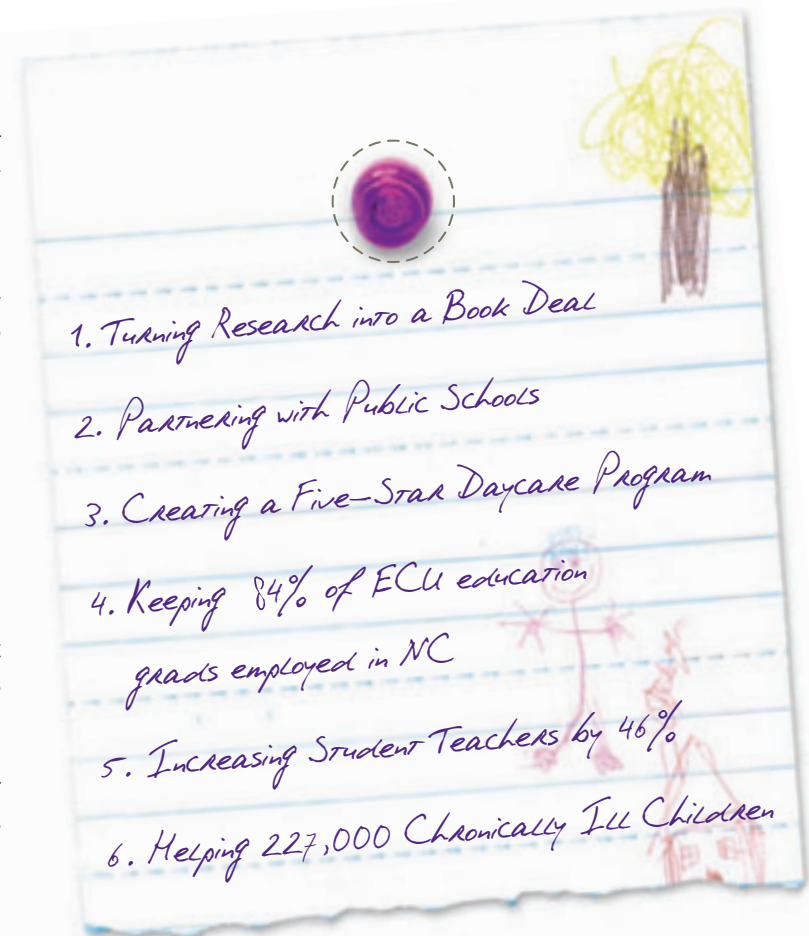 1. Turning Research into a Book Deal
2. Partnering with Public Schools
3. Creating a Five-Star Daycare Program
4. Keeping 84% of ECU education
grads employed in NC
5. Increasing Student Teachers by 46%
6. Helping 227,000 Chronically Ill Children